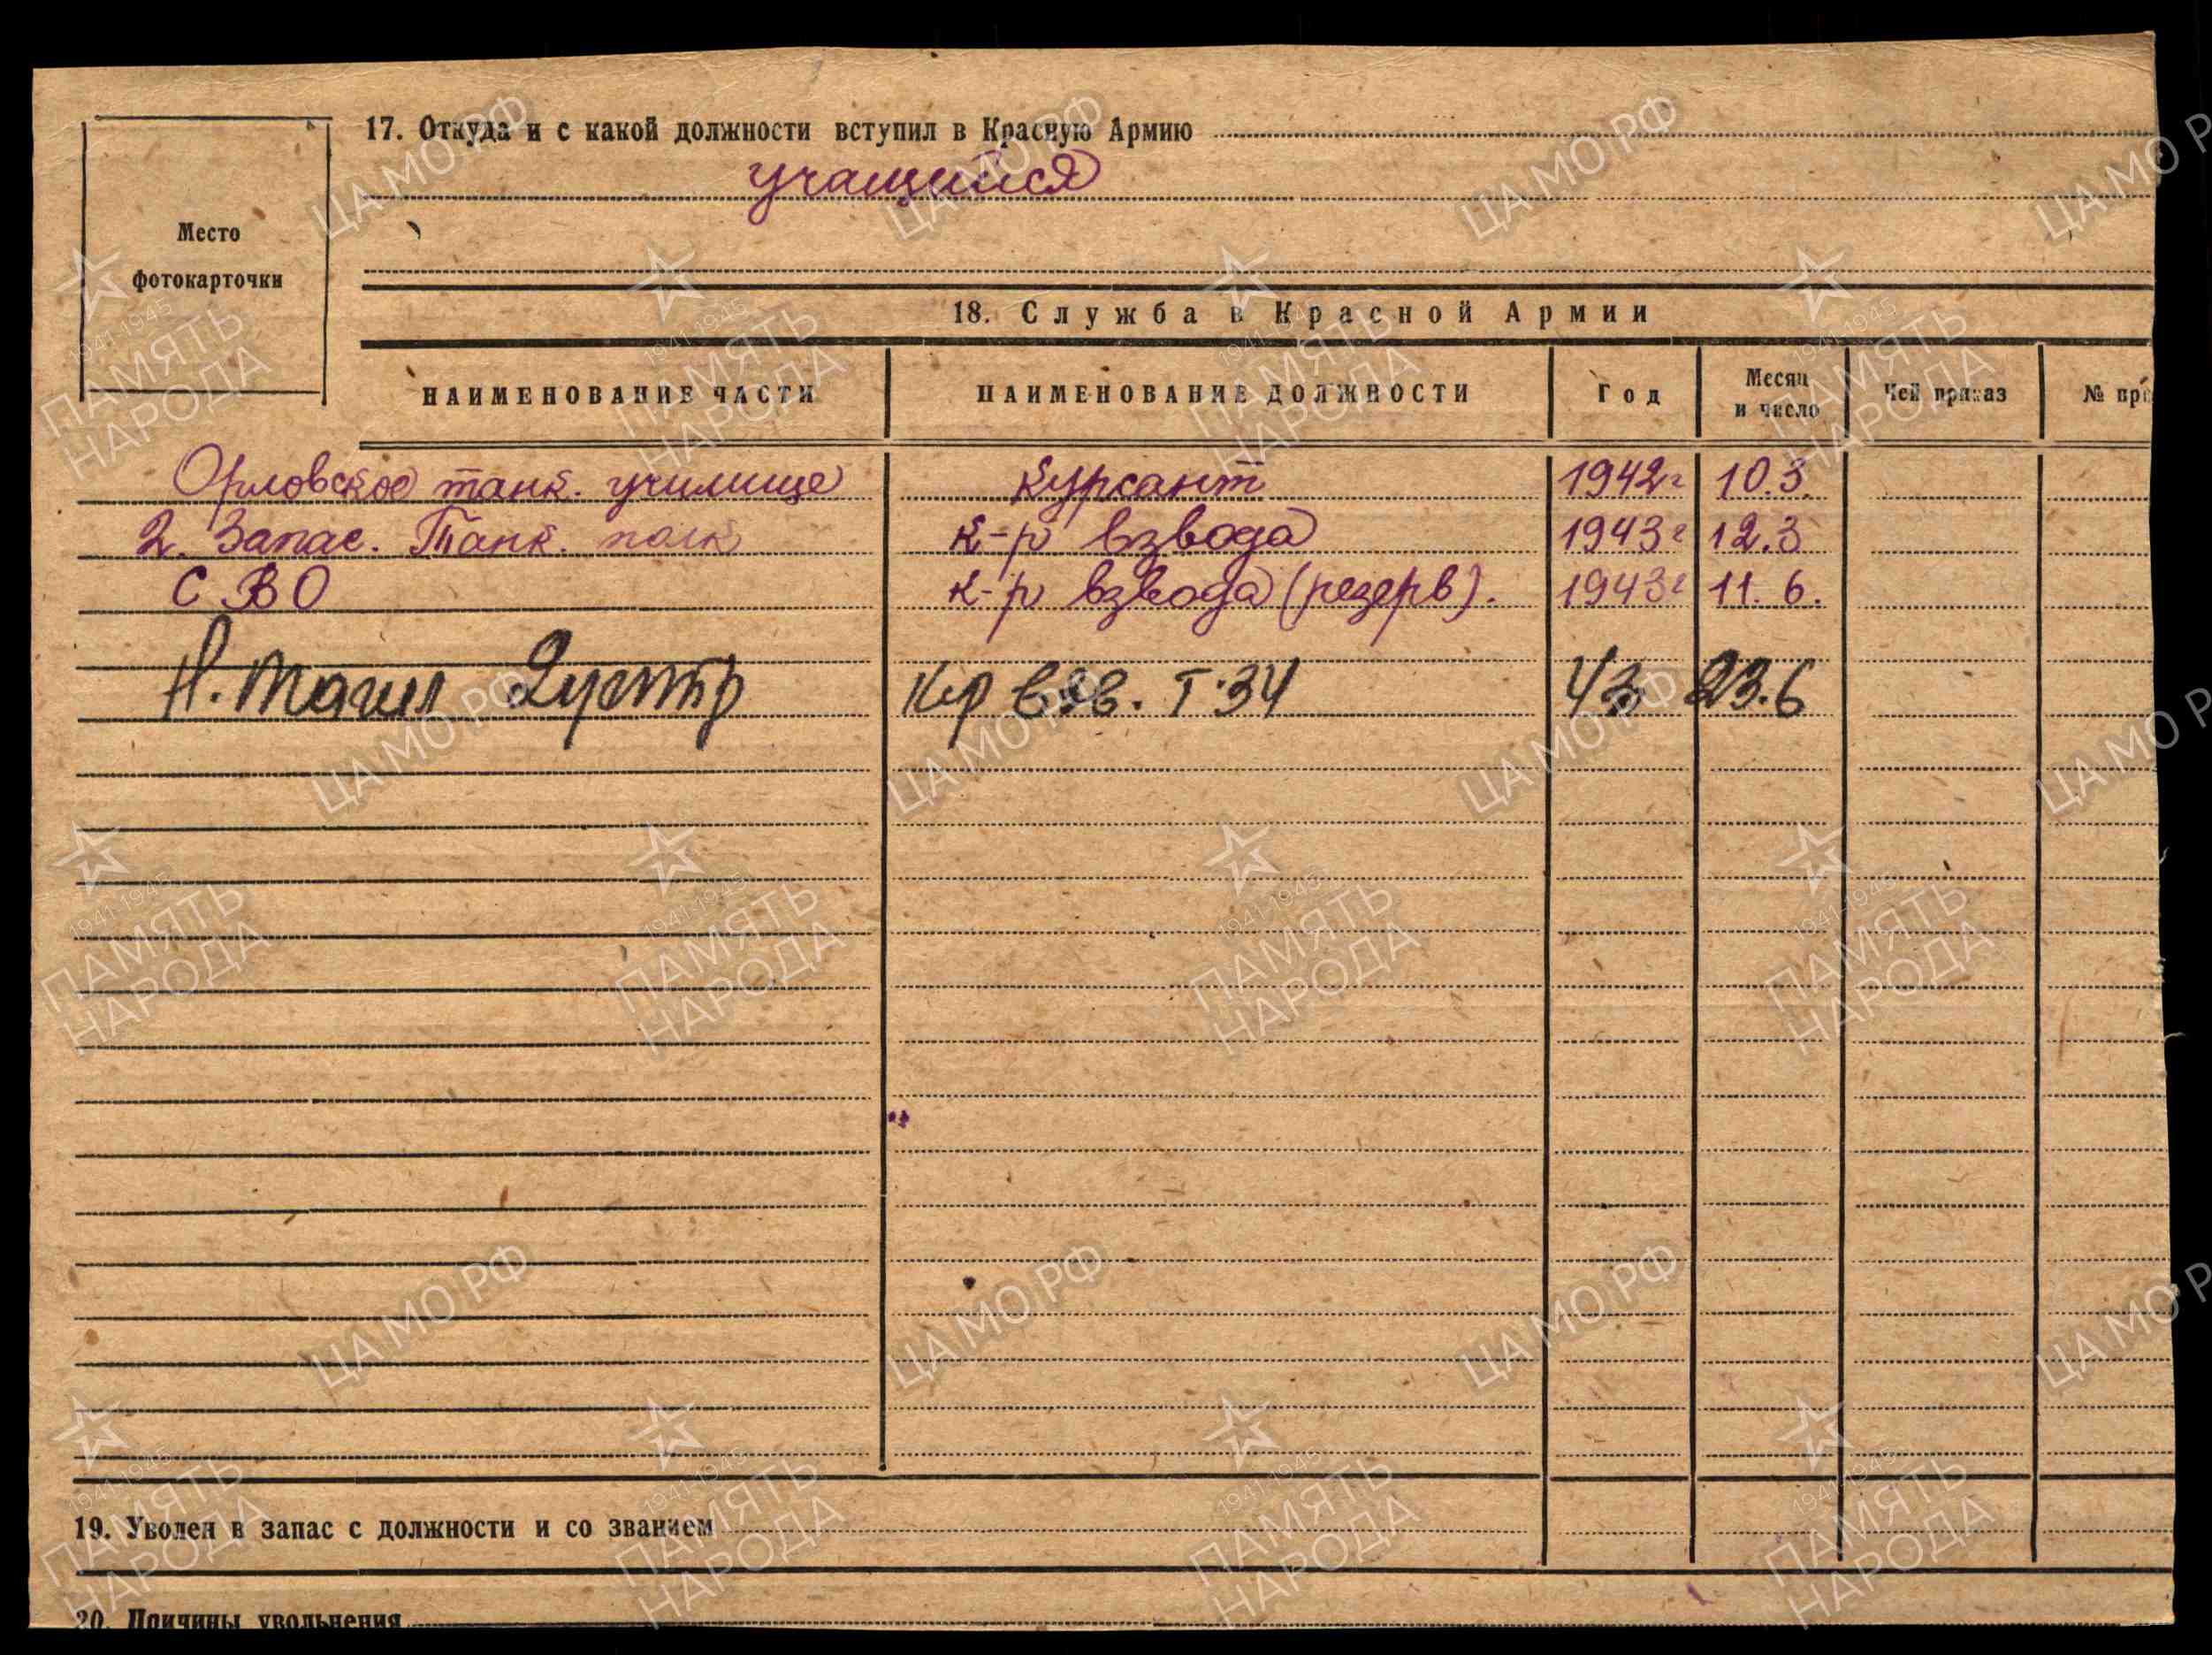 17. Откуда и с какой должности вступил в Красную Армию
учащийся
Место
фотокарточки
18. Служба в Красной Армии
НАИМЕНОВАНИЕ ЧАСТИ НАИМЕНОВАНИЕ ДОЛЖНОСТИ Год Месяц и число Чей приказ № при
Орловское танк. училище курсант 1942г 10.3.
2. Запас. Танк. полк к-р взвода 1943г 12.3
СВО к-р взвода (резерв). 1943г 11.6.
Н. Тагил К-р взв. Т-34 43 23.6
19. Уволен в запас с должности и со званием
20. Причины увольнения
ЦАМО РФ
1941-1945
ПАМЯТЬ
НАРОДА